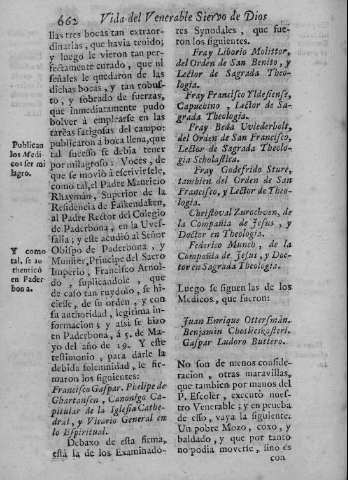 662 Vida del Venerable Siervo de Dios
llas tres bocas tan extraor-
dinarias, que havia tenido;
y luego le vieron tan per-
fectamente curado, que ni
señales le quedaron de las
dichas bocas, y tan robus-
to, y sobrado de fuerzas,
que inmediatamente pudo
bolver à emplearse en las
tareas fatigosas del campo:
publicaron à boca llena, que
tal sucesso se debia tener
por milagroso: Voces, de
que se moviò à escrivirsele,
como tal, el Padre Mauricio
Rhayman, Superior de la
Residencia de Falkendaken,
al Padre Rector del Colegio
de Paderbona, en la Uvest-
falia; y este acudiò al Señor
Obispo de Paderbona, y
Munster, Principe del Sacro
Imperio, Francisco Arnol-
do, suplicandole, que
de caso tan ruydoso, se hi-
ciesse, de su orden, y con
su authoridad, legitima in-
formacion; y assi se hizo
en Paderbona, à 5. de Ma-
yo del año de 19. Y este
testimonio, para darle la
debida solemnidad, le fir-
maron los siguientes:
Francisco Gaspar, Phelipe de
Ghartansen, Canonigo Ca-
pitular de la Iglesia Cathe-
dral, y Vicario General en
lo Espiritual.
Debaxo de esta firma,
està la de los Examinado-
Publican
los Medi-
cos ser mi
lagro.
Y como
tal, se au-
thenticò
en Pader
bona.
res Synodales, que fue-
ron los siguientes.
Fray Liborio Molittor,
del Orden de San Benito, y
Lector de Sagrada Theo-
logia.
Fray Francisco Yldefiense,
Capuchino, Lector de Sa-
grada Theologia.
Fray Beda Uviederbolt,
del Orden de San Francisco,
Lector de Sagrada Theolo-
gia Scholastica.
Fray Godefrido Sture,
tambien del Orden de San
Francisco, y Lector de Theo-
logia.
Christoval Zurechoon, de
la Compañia de Jesus, y
Doctor en Theologia.
Federico Munco, de la
Compañia de Jesus, y Doc-
tor en Sagrada Theologia.
Luego se siguen las de los
Medicos, que fueron:
Juan Enrique Ottersman.
Benjamin
Gaspar Ludoro Buttero.
No son de menos conside-
racion, otras maravillas,
que tambien por manos del
P. Escoler, executò nues-
tro Venerable; y en prueba
de esso, vaya la siguiente.
Un pobre Mozo, coxo, y
baldado, y que por tanto
no podia moverse, sino es
con